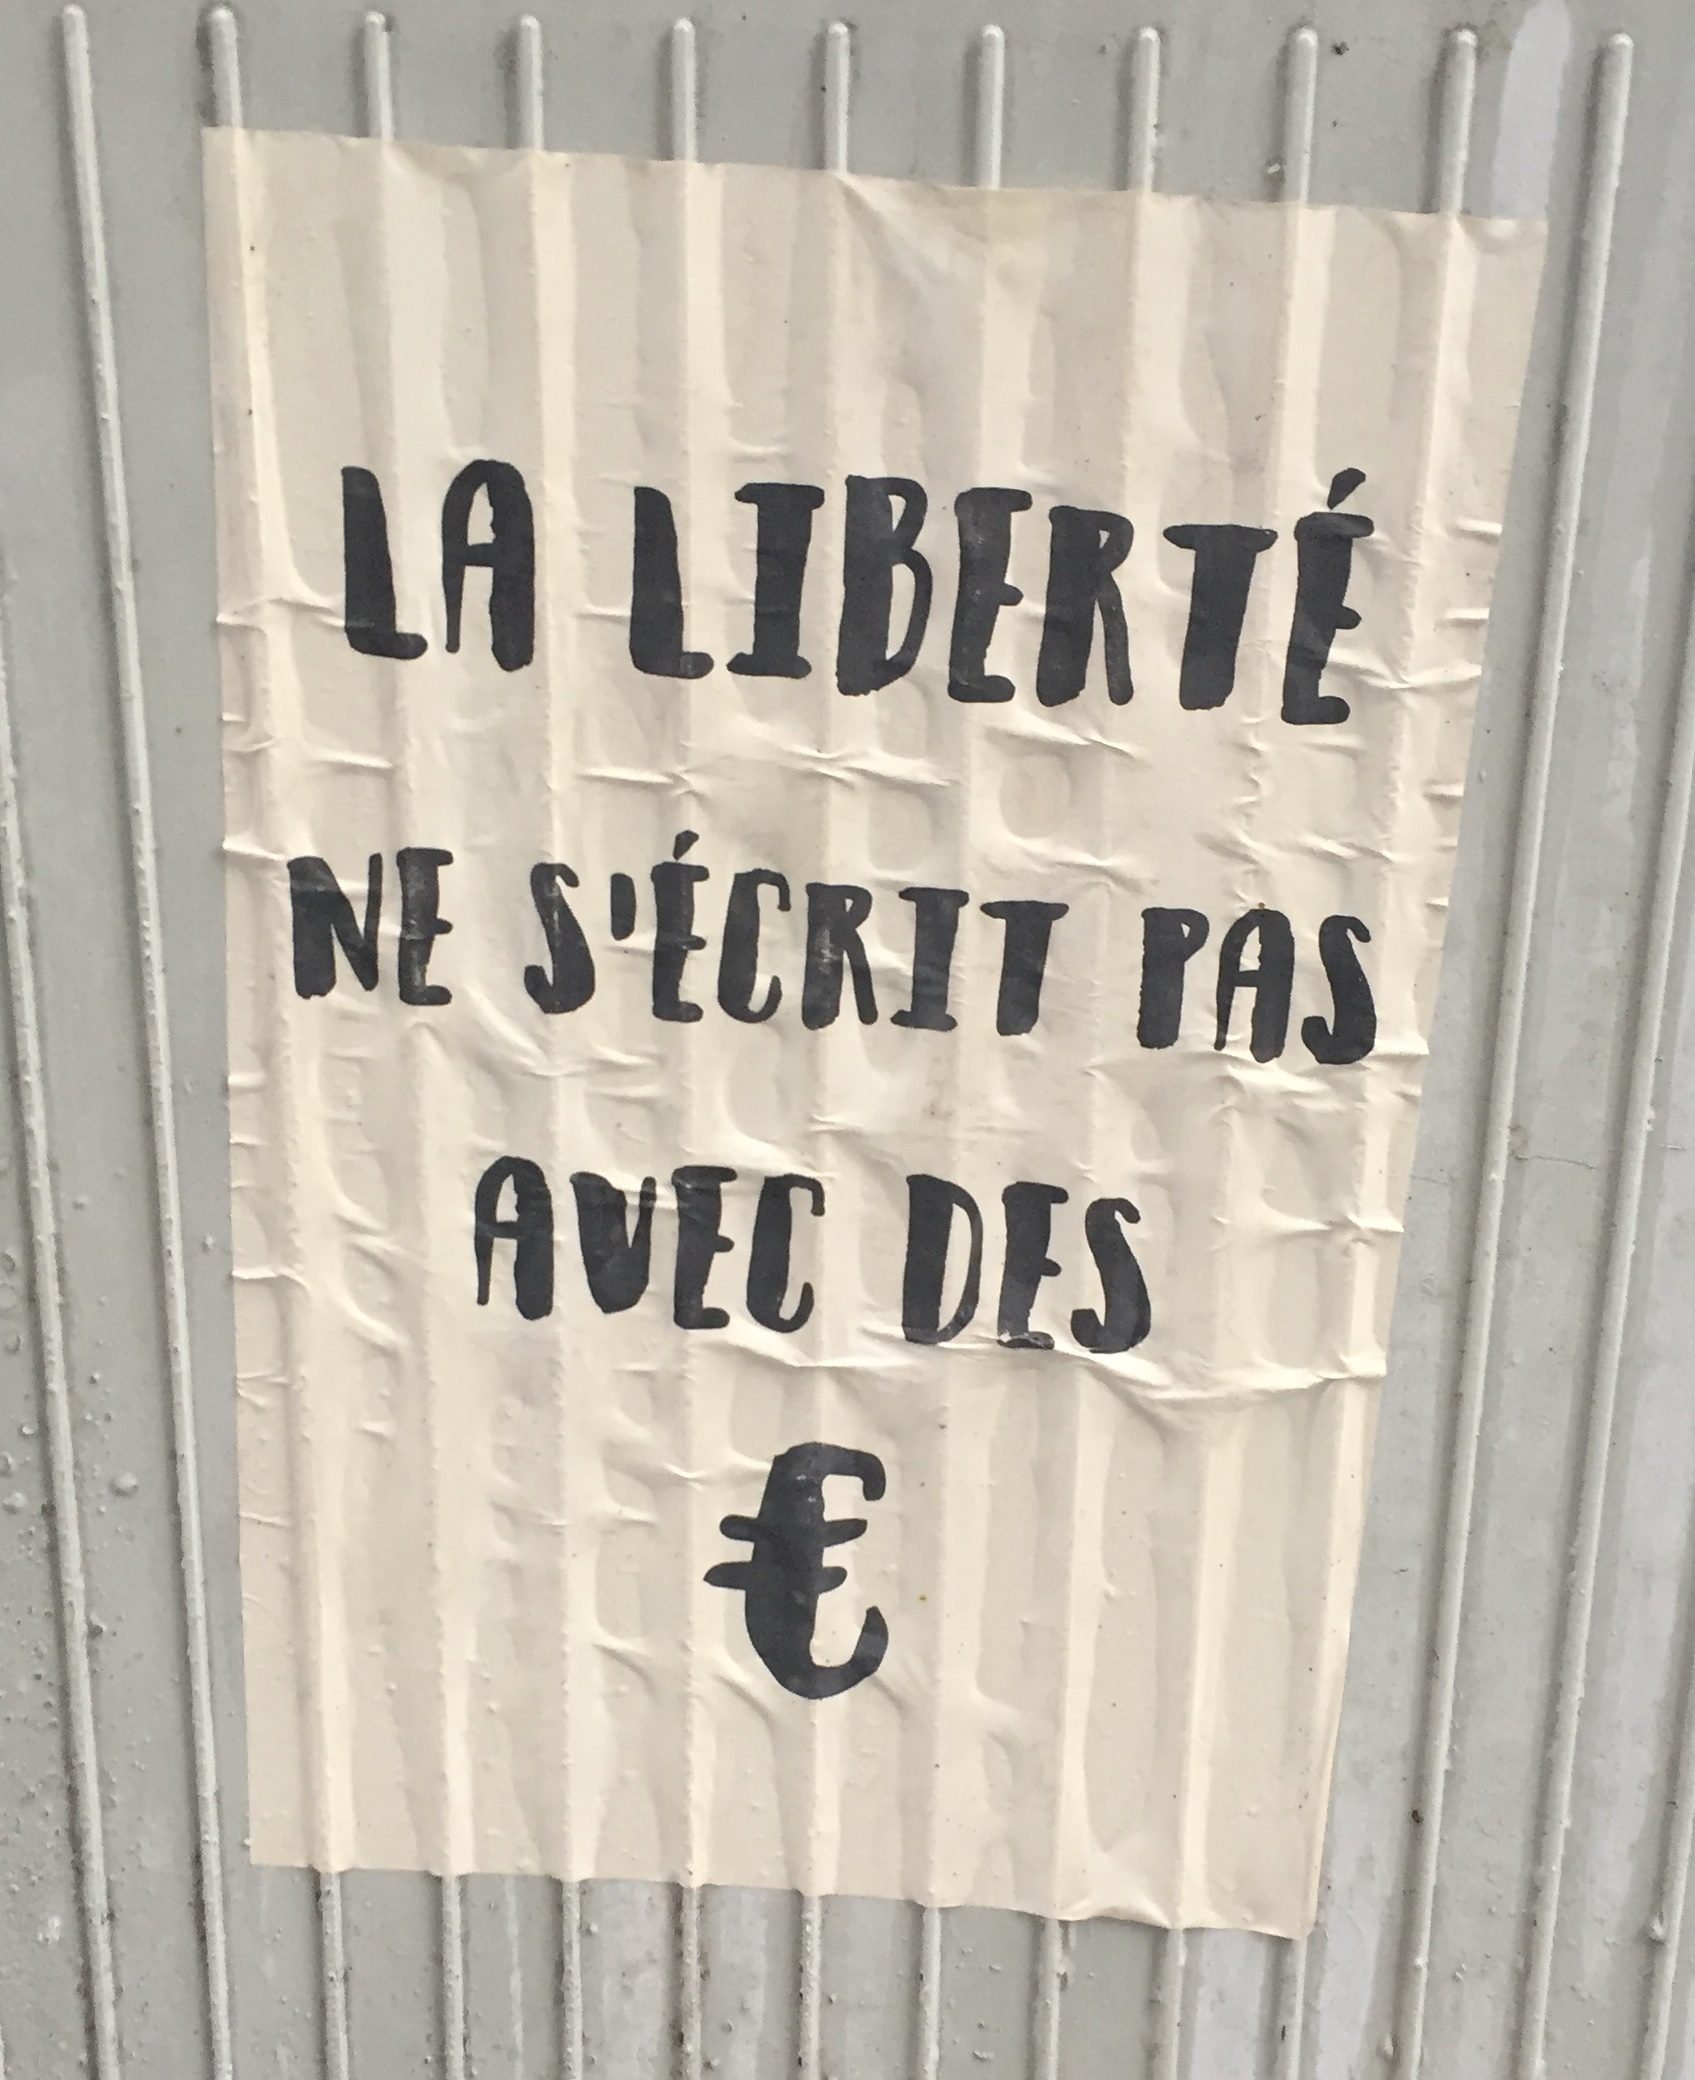 LA LIBERTÉ
NE S'ÉCRIT PAS
AVEC DES
€